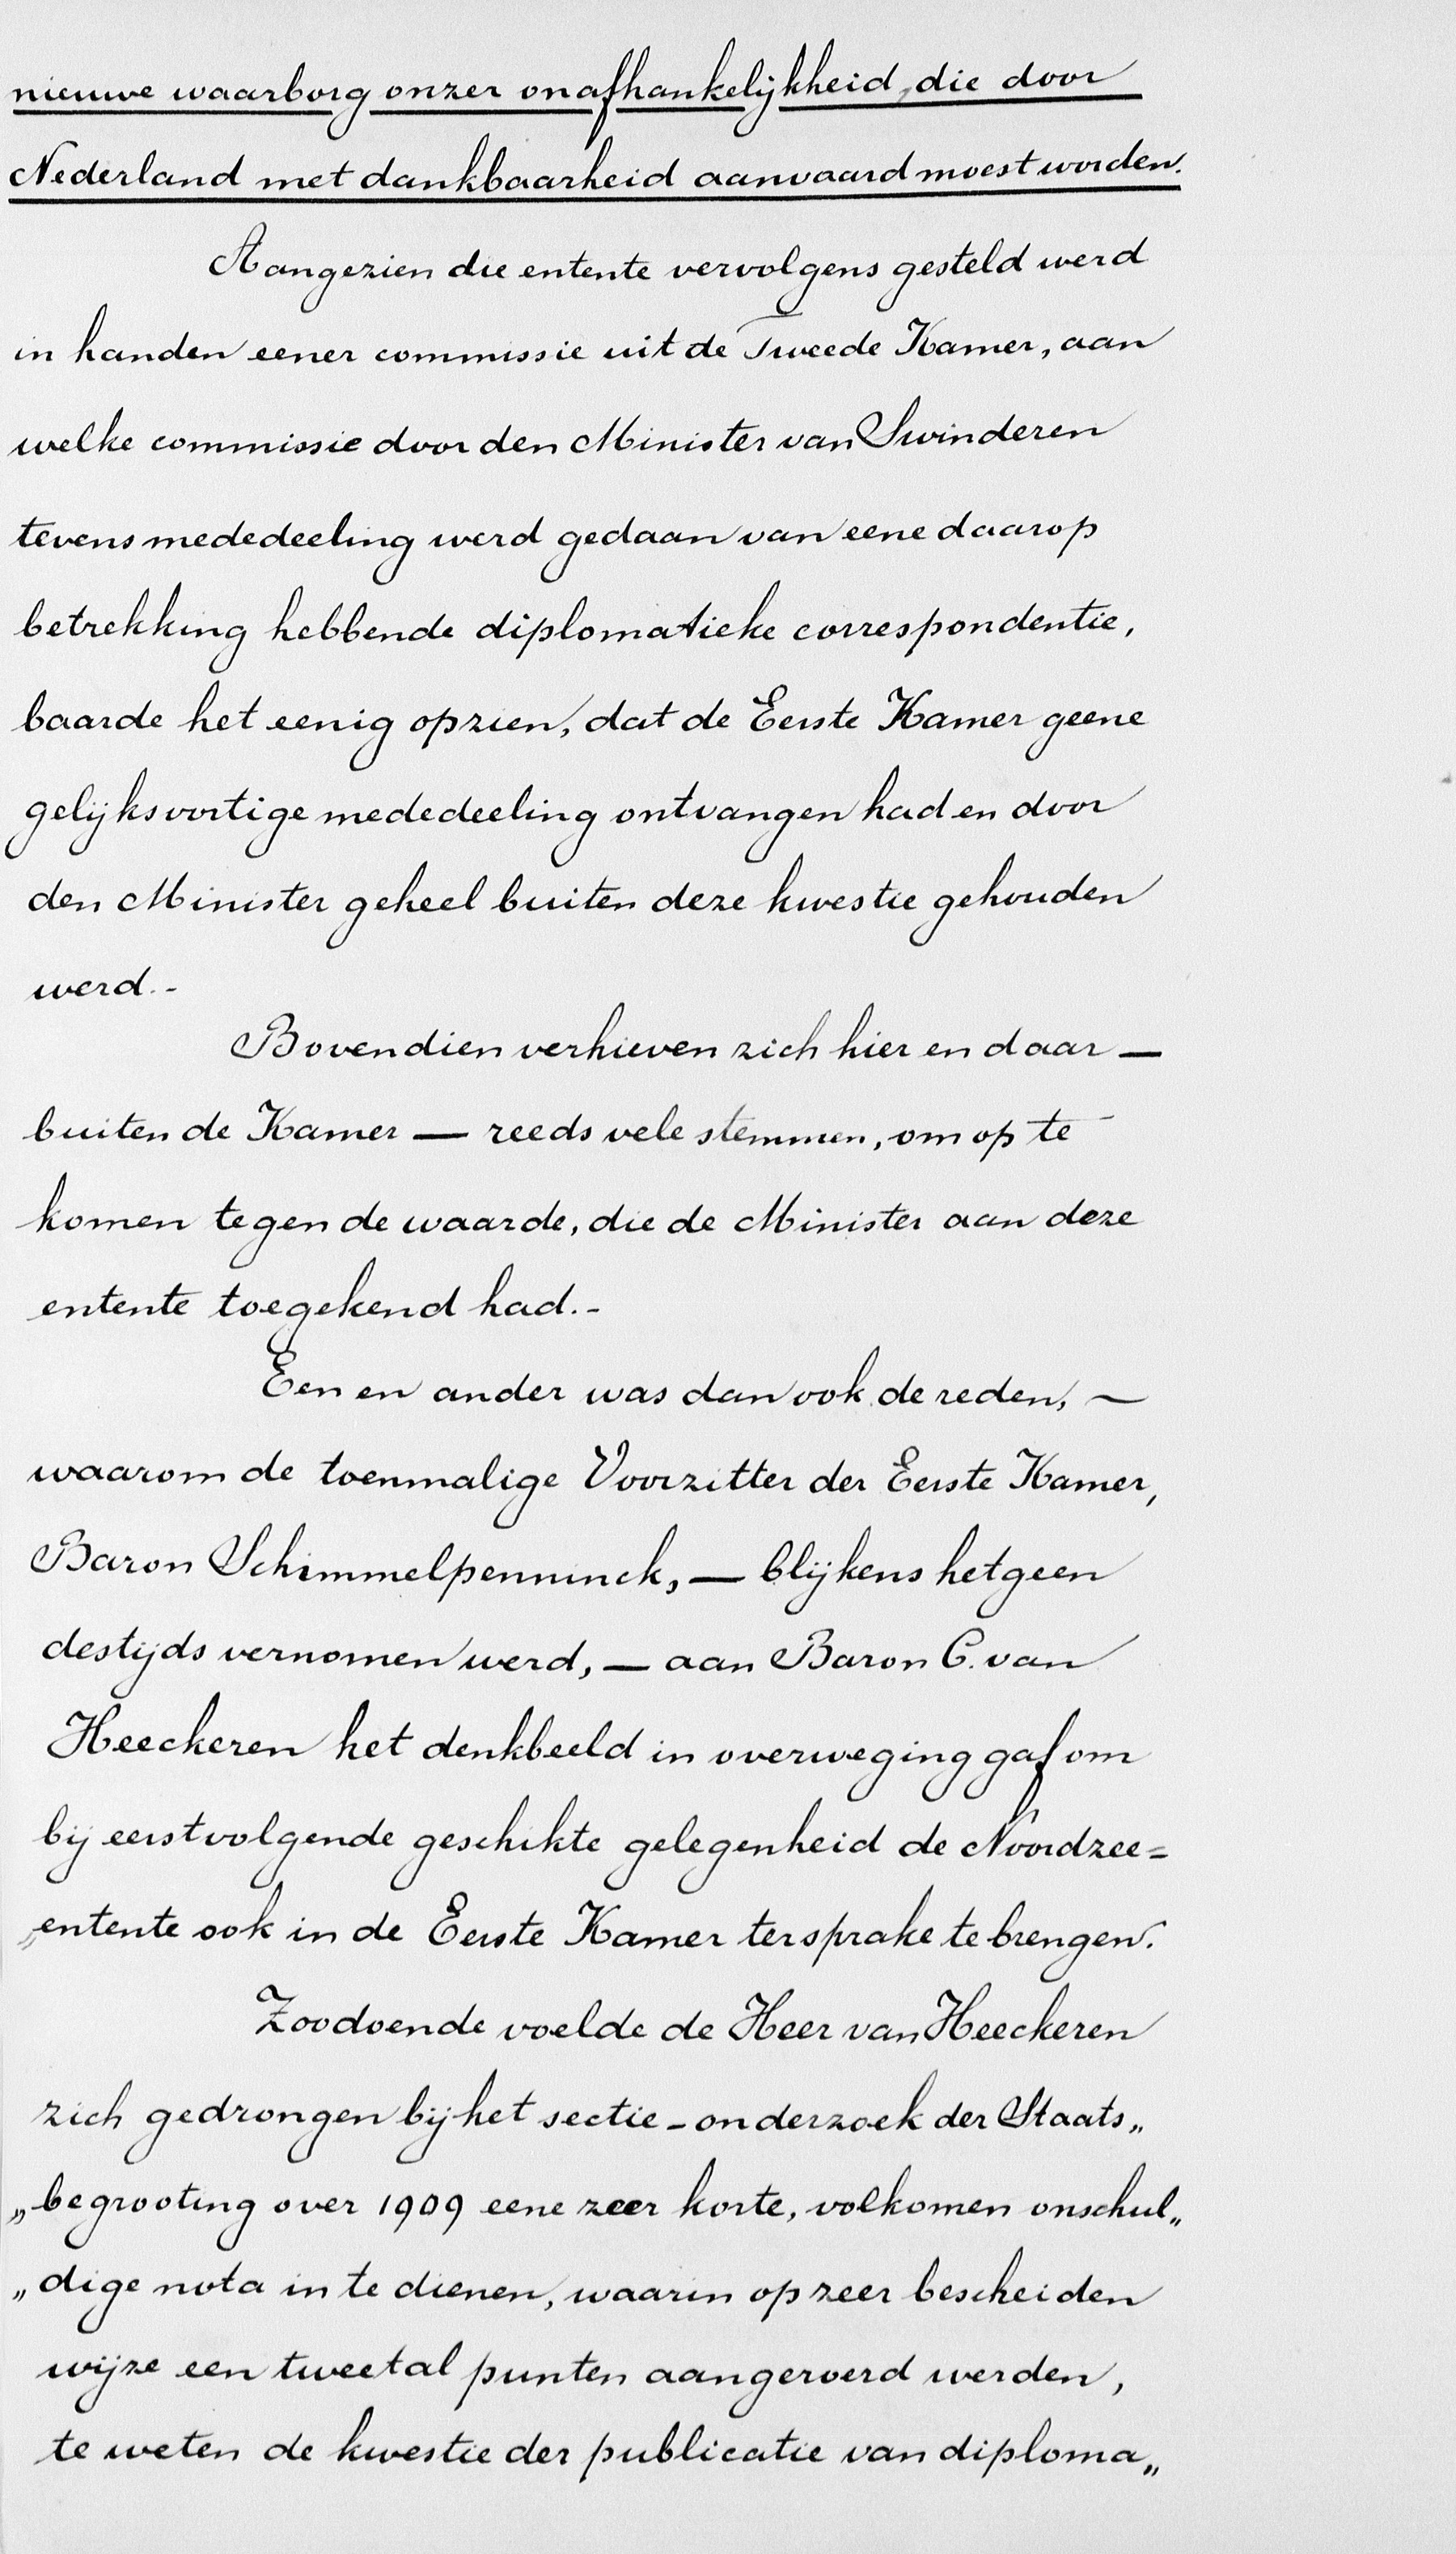 nieuwe waarborg onzer onafhankelijkheid, die door
Nederland met dankbaarheid aanvaard moest worden.
Aangezien die entente vervolgens gesteld werd
in handen eener commissie uit de Tweede Kamer, aan
welke commissie door den Minister van Swinderen
tevens mededeeling werd gedaan van eene daarop
betrekking hebbende diplomatieke correspondentie,
baarde het eenig opzien, dat de Eerste Kamer geene
gelijksoortige mededeeling ontvangen had en door
den Minister geheel buiten deze kwestie gehouden
werd.-
Bovendien verhieven zich hier en daar —
buiten de Kamer — reeds vele stemmen, om op te
komen tegen de waarde, die de Minister aan deze
entente toegekend had.-
Een en ander was dan ook de reden, —
waarom de toenmalige Voorzitter der Eerste Kamer,
Baron Schimmelpenninck, — blijkens hetgeen
destijds vernomen werd, — aan Baron C. van
Heeckeren het denkbeeld in overweging gaf om
bij eerstvolgende geschikte gelegenheid de Noordzee=
„entente ook in de Eerste Kamer ter sprake te brengen.
Zoodoende voelde de Heer van Heeckeren
zich gedrongen bij het sectie-onderzoek der Staats„
„begrooting over 1909 eene zeer korte, volkomen onschul„
„dige nota in te dienen, waarin op zeer bescheiden
wijze een tweetal punten aangeroerd werden,
te weten de kwestie der publicatie van diploma„